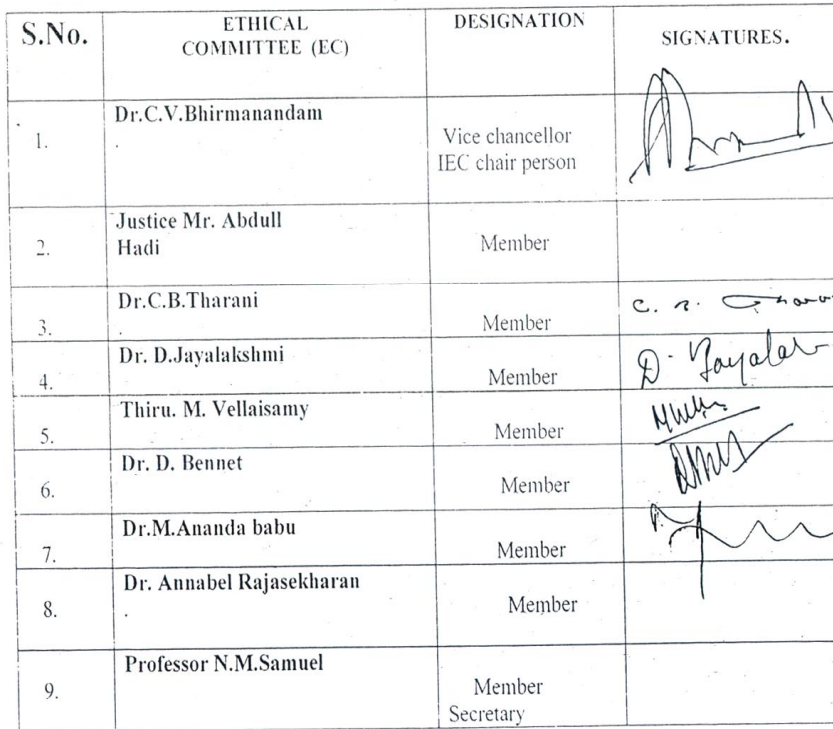 S.No.
ETHICAL
COMMITTEE (EC)
DESIGNATION
SIGNATURES.
1.
Dr.C.V.Bhirmanandam
.
Vice chancellor
IEC chair person
2.
Justice Mr. Abdull
Hadi
Member
3.
Dr.C.B.Tharani
.
Member
C.
4.
Dr. D.Jayalakshmi
Member
D.
5.
Thiru. M. Vellaisamy
Member
6.
Dr. D. Bennet
Member
7.
Dr.M.Ananda babu
Member
8.
Dr. Annabel Rajasekharan
.
Member
9.
Professor N.M.Samuel
Member
Secretary